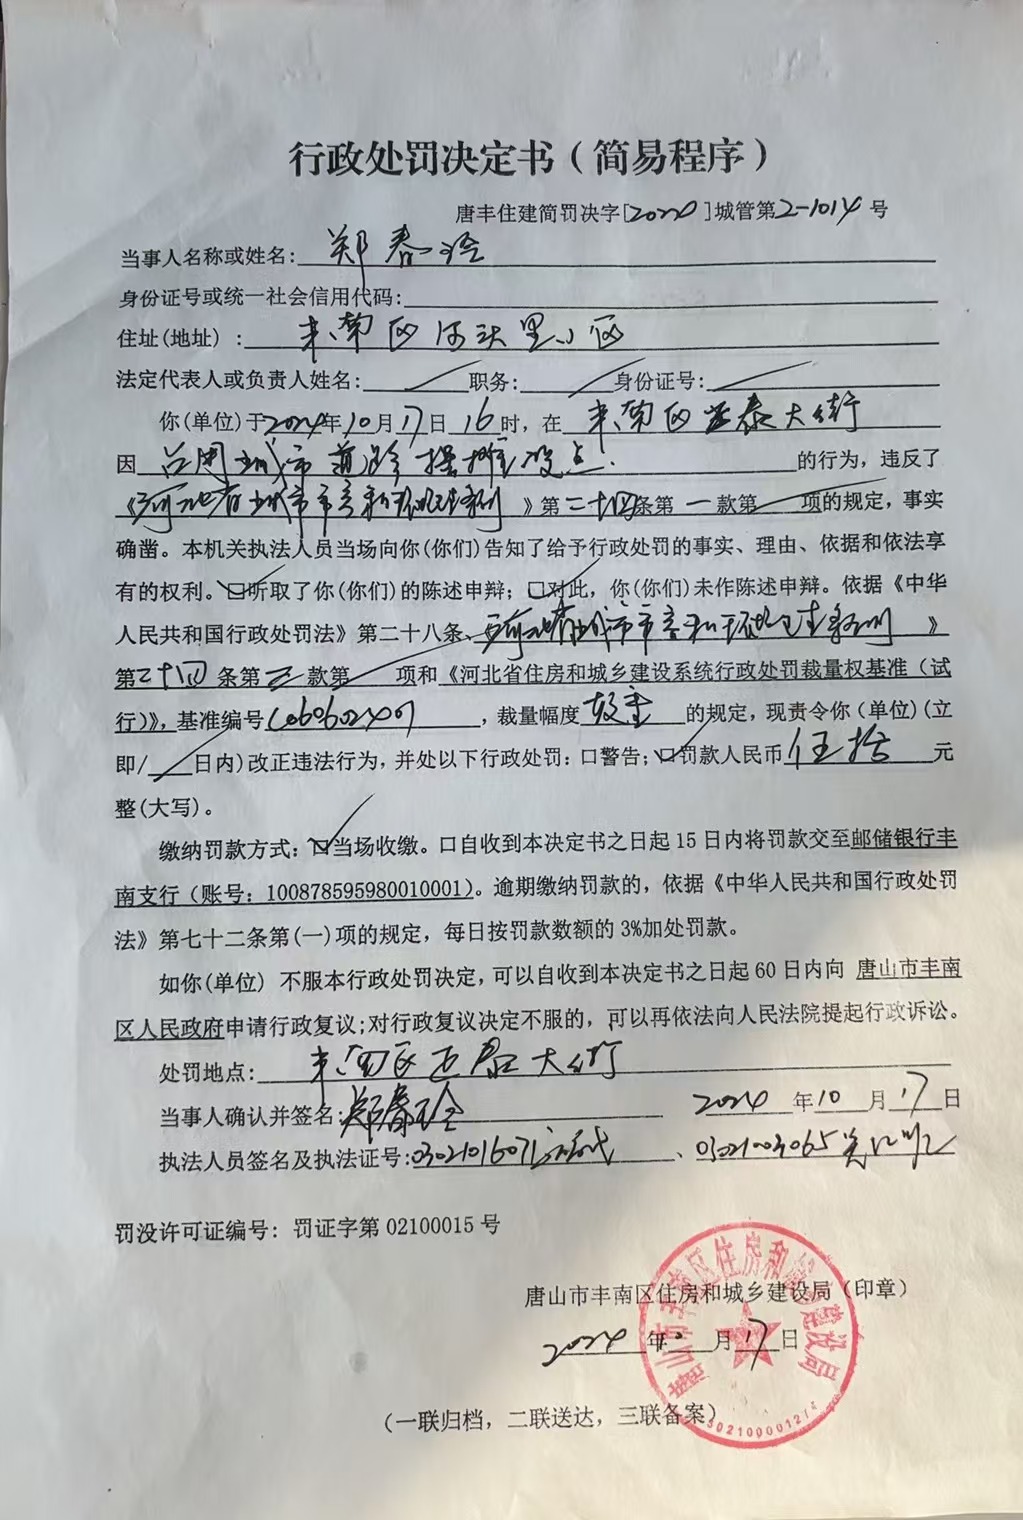 行政处罚决定书（简易程序）
唐丰住建简罚决字[2024]城管第2-1014号
当事人名称或姓名：郑春
身份证号或统一社会信用代码：
住址(地址)：丰南区河头里小区
法定代表人或负责人姓名： 职务： 身份证号：
你(单位)于2024年10月17日16时，在丰南区正泰大街
因占用城市道路摆摊设点.的行为，违反了
《河北省城市市容和环境卫生条例》第二十四条第一款第 项的规定，事实
确凿。本机关执法人员当场向你(你们)告知了给予行政处罚的事实、理由、依据和依法享
有的权利。口听取了你(你们)的陈述申辩；口对此，你(你们)未作陈述申辩。依据《中华
人民共和国行政处罚法》第二十八条、河北省城市市容和环境卫生条例》
第二十四条第三款第 项和《河北省住房和城乡建设系统行政处罚裁量权基准（试
行)》，基准编号C060602407，裁量幅度较重的规定，现责令你（单位)(立
即/ 日内)改正违法行为，并处以下行政处罚：口警告；口罚款人民币伍拾元
整(大写)。
缴纳罚款方式：口当场收缴。口自收到本决定书之日起15日内将罚款交至邮储银行丰
南支行（账号：100878595980010001）。逾期缴纳罚款的，依据《中华人民共和国行政处罚
法》第七十二条第(一)项的规定，每日按罚款数额的3%加处罚款。
如你(单位) 不服本行政处罚决定，可以自收到本决定书之日起60日内向 唐山市丰南
区人民政府申请行政复议;对行政复议决定不服的，可以再依法向人民法院提起行政诉讼。
处罚地点：丰南区正泰大街
当事人确认并签名：郑春 2024年10月17日
执法人员签名及执法证号：03021016071 、03021003065
罚没许可证编号：罚证字第02100015号
唐山市丰南区住房和城乡建设局（印章）
2024年10月17日
（一联归档，二联送达，三联备案）
唐山市丰南区住房和城乡建设局